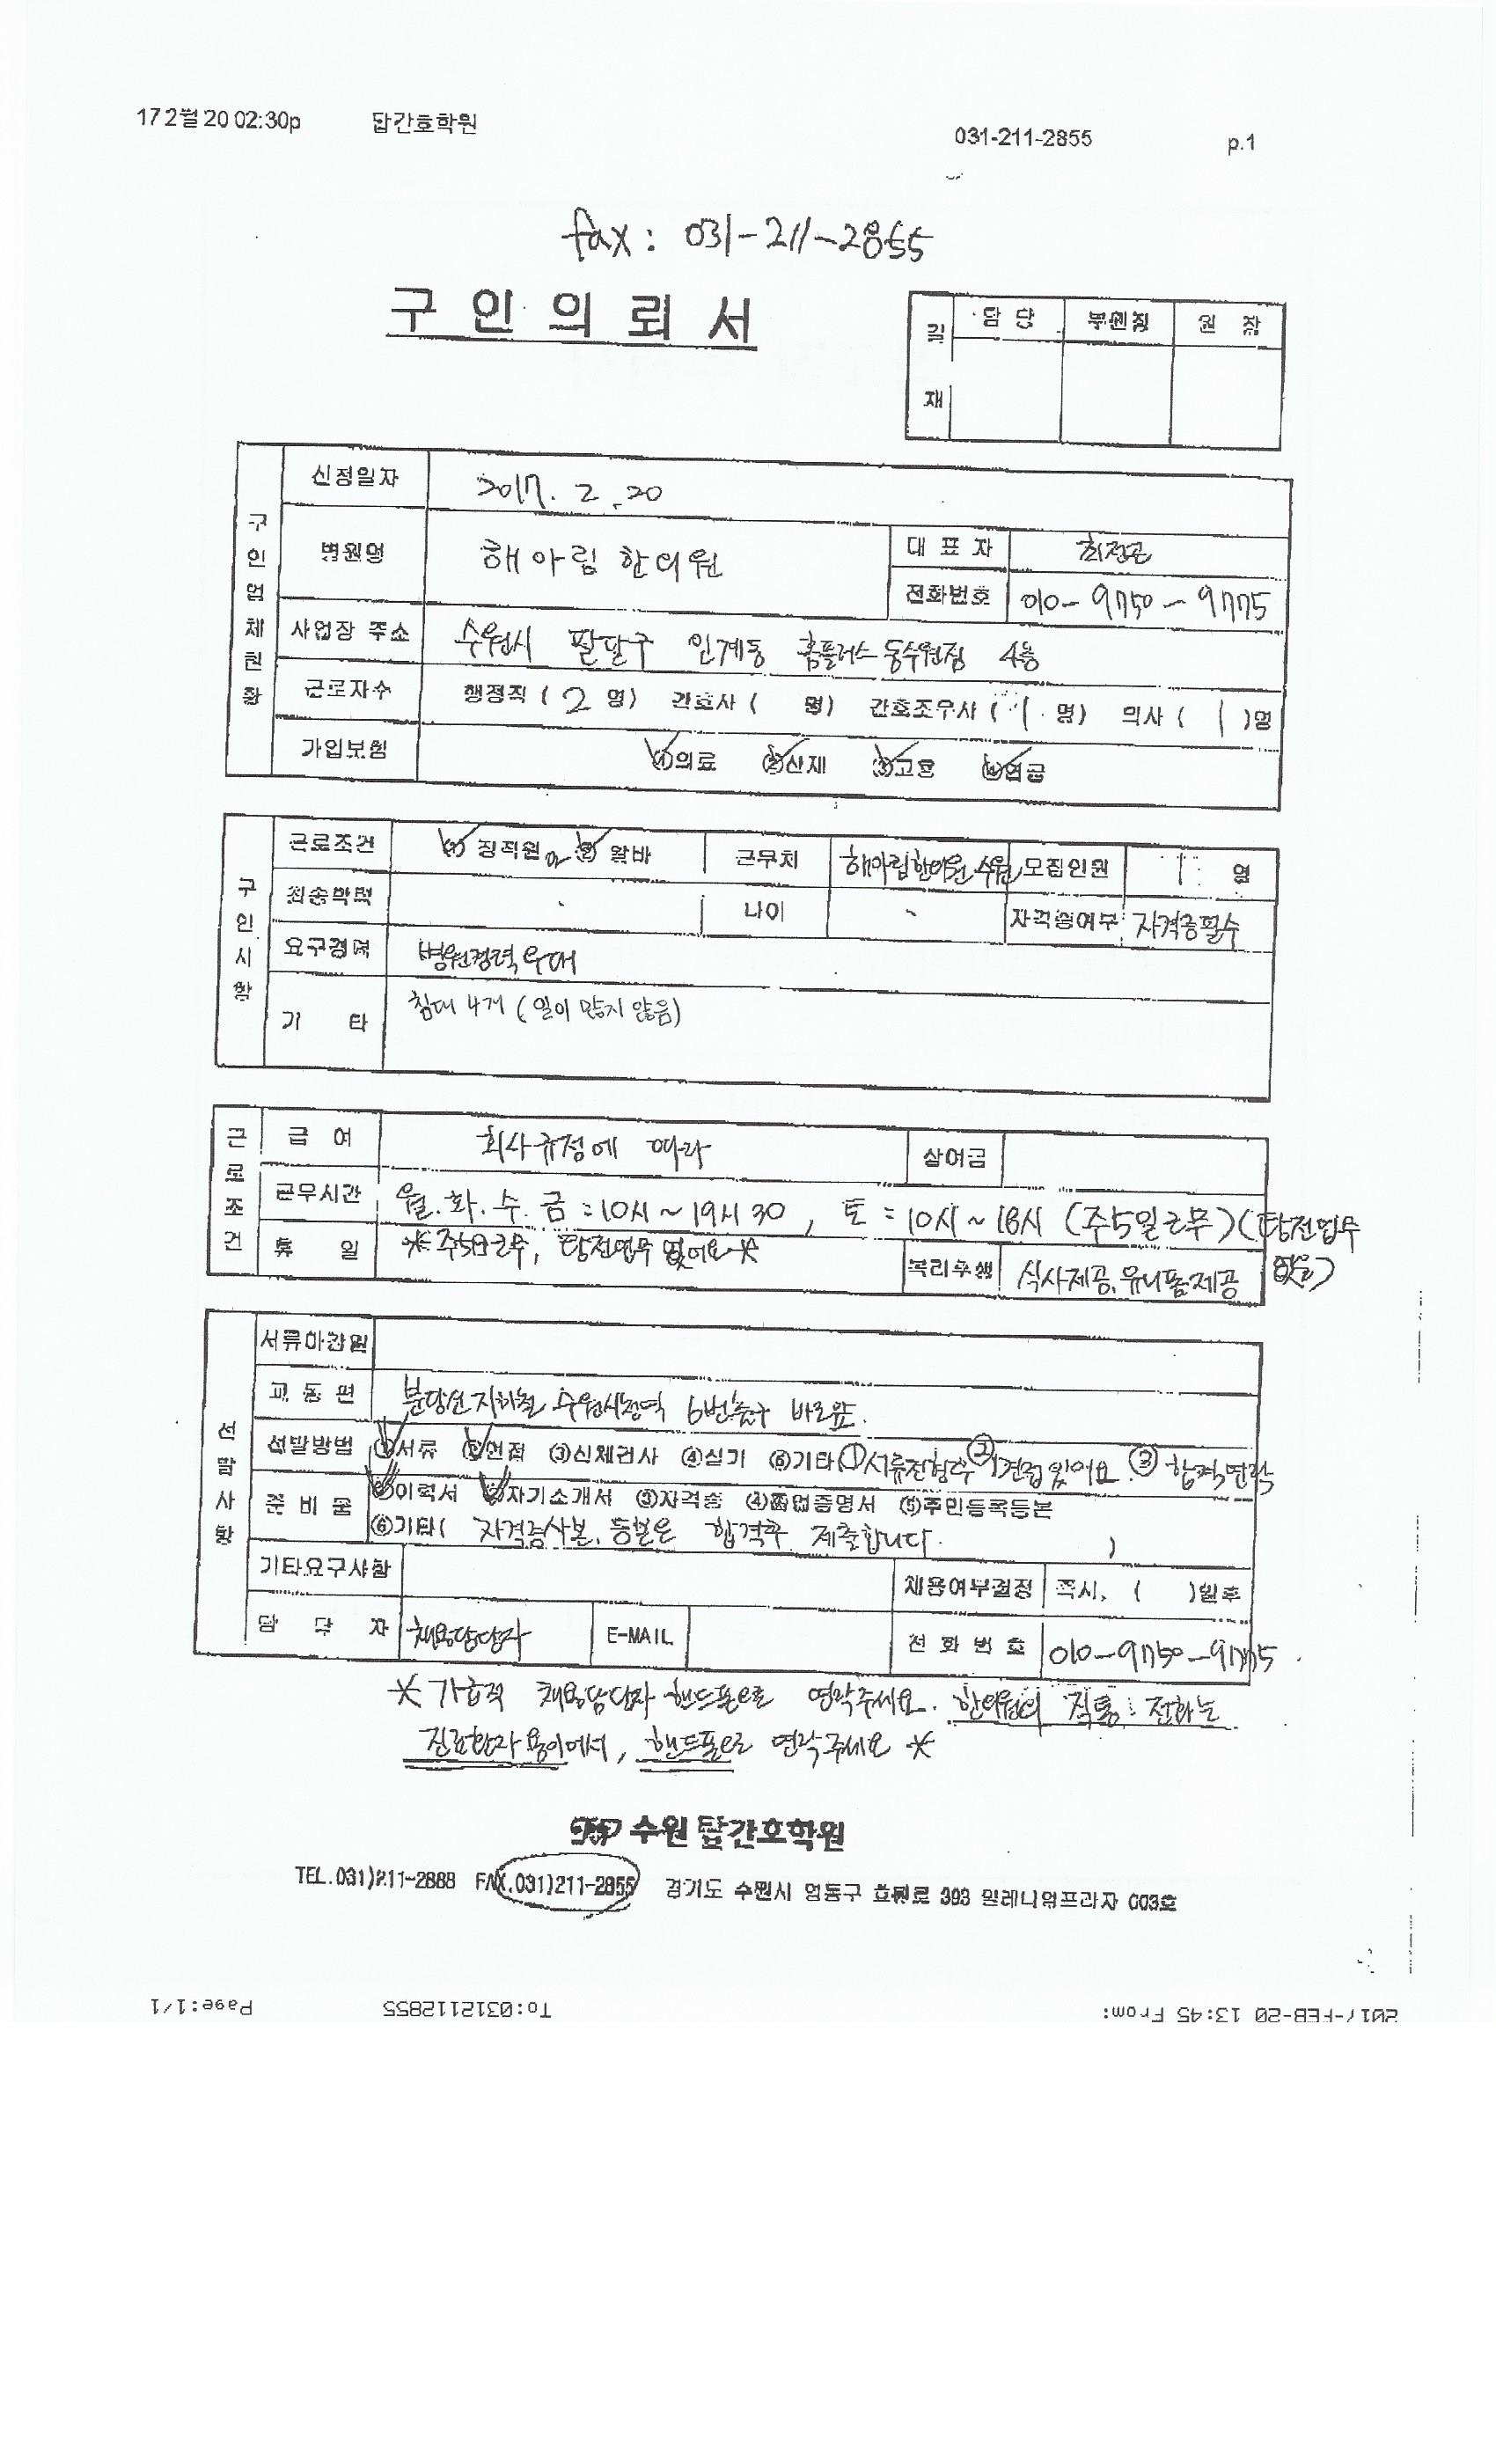 17 2월 20 02:30p 탑간호학원 031-211-2855 p.1
fax: 031-211-2855
구 인 의 뢰 서
결 재 담 당 부원장 원 장
구인업체현황
신청일자 2017. 2. 20
병원명 해아림 한의원 대 표 자
전화번호 010-9750-9775
사업장 주소 수원시 팔달구 인계동 홈플러스 동수원점 4층
근로자수 행정직 ( 2 명) 간호사 ( 명) 간호조무사 ( 1 명) 의사 ( 1 )명
가입보험 ①의료 ②산재 ③고용 ④연금
구인사항
근로조건 ① 정직원 or ② 알바 근무처 해아림한의원 수원 모집인원 1 명
최종학력 나이 자격증여부 자격증필수
요구경력 병원경력우대
기 타 침대 4개 (일이 많지 않음)
근로조건
급 여 회사규정에 따라 상여금
근무시간 월.화.수.금 = 10시~19시30, 토 = 10시~18시 (주5일근무) (탕전업무 없음)
휴 일 *주5日근무, 탕전업무 없어요* 복리후생 식사제공, 유니폼제공
선발사항
서류마감일
교 통 편 분당선 지하철 수원시청역 6번출구 바로앞.
선발방법 ①서류 ②면접 ③신체검사 ④실기 ⑤기타 ①서류전형후 ②면접있어요. ③합격연락
준 비 물 ①이력서 ②자기소개서 ③자격증 ④졸업증명서 ⑤주민등록등본
⑥기타( 자격증사본, 등본은 합격후 제출합니다. )
기타요구사항 채용여부결정 즉시, ( )일후
담 당 자 채용담당자 E-MAIL 전 화 번 호 010-9750-9775
* 가급적 채용담당자 핸드폰으로 연락주세요. 한의원의 직통 전화는
진료환자용이에서, 핸드폰으로 연락주세요 *
수원 탑간호학원
TEL.031)211-2888 FAX.031)211-2855 경기도 수원시 영통구 효원로 393 밀레니엄프라자 603호
2017-FEB-20 13:45 From: To:0312112855 Page:1/1